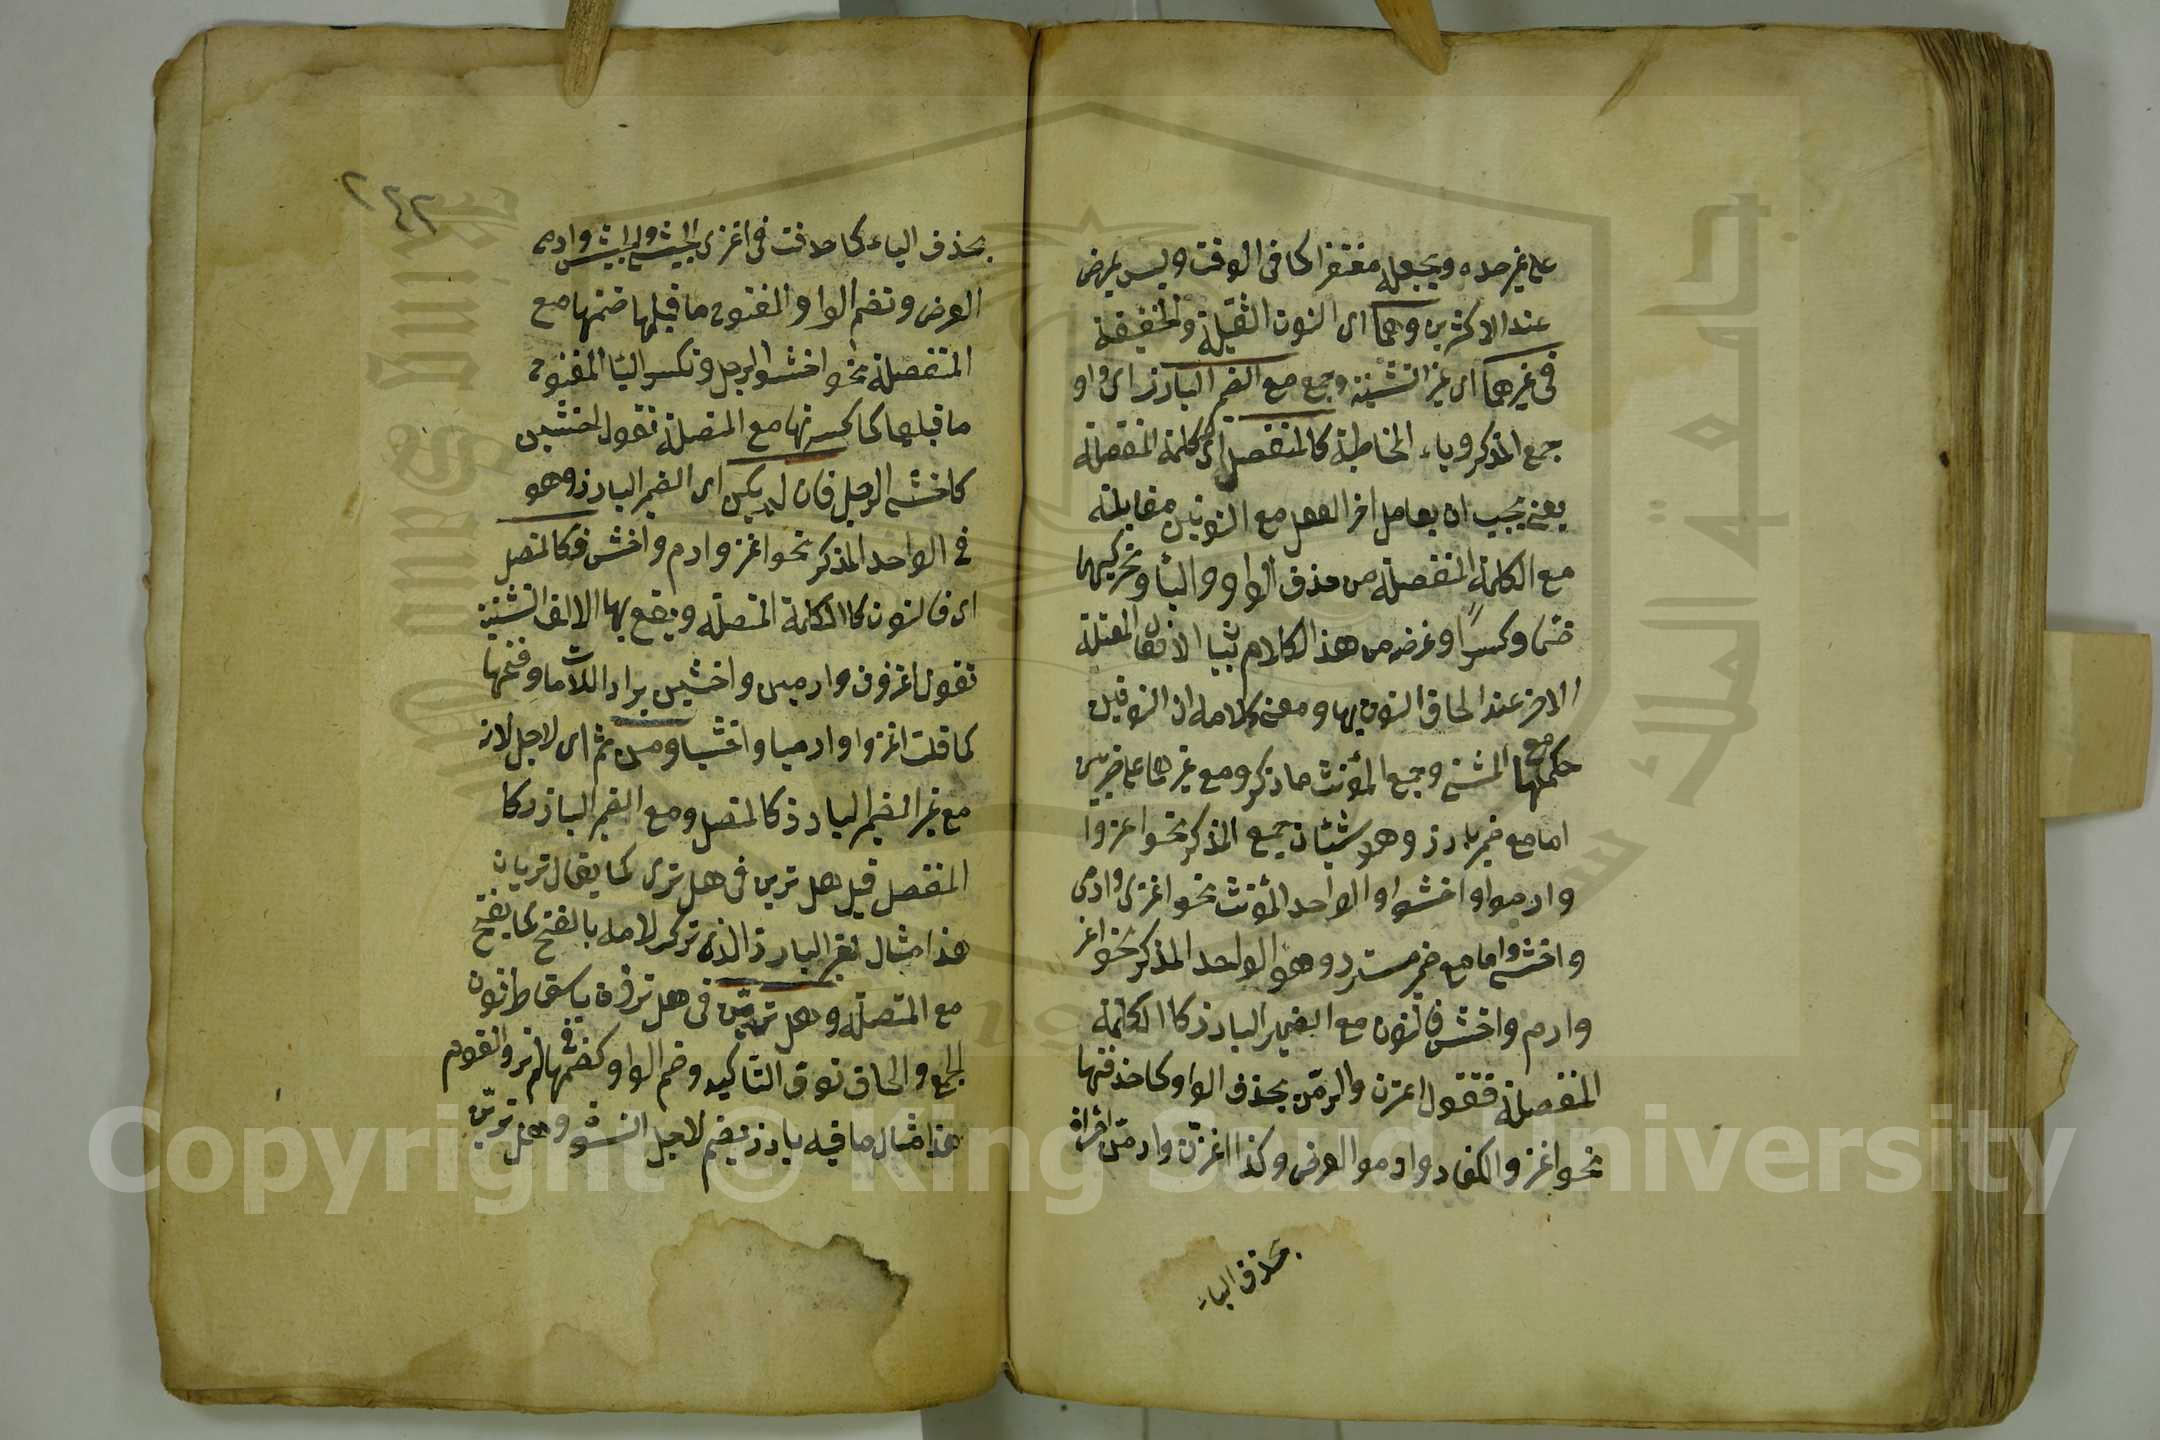 على غير حده ويجعله مغتفرا كما في الوقف وليس بمرضى
عند الاكثرين وهما اى النون الثقيلة والخفيفة
فى غيرهما اى غير التثنية وجمع مع الضمير البارز اى واو
جمع المذكر وياء المخاطبة كالمنفصل اى كالكلمة المنفصلة
يعنى يجب ان يعامل اخر الفعل مع النونين معاملته
مع الكلمة المنفصلة من حذف الواو والياء وتحريكهما
ضما وكسرا وغرضه من هذا الكلام بيان الافعال المعتلة
الاخر عند الحاق النون بها ومعنى كلامه ان النونين
حكمهما مع المثنى وجمع المؤنث ما ذكر ومع غيرهما على ضربين
اما مع ضمير بارز وهو شيئان جمع المذكر نحو اغزوا
وارموا واخشوا والواحد المؤنث نحو اغزى وارمى
واخشى واما مع ضمير مستتر وهو الواحد المذكر نحو اغز
وارم واخش فالنون مع الضمير البارز كالكلمة
المنفصلة فتقول اغزن وارمن بحذف الواو كما حذفتها
نحو اغزوا الكفار وارموا الغرض وكذا اغزن وارمن امراة
بحذف الياء
٢٤٢
بحذف الياء كما حذفت فى اغزى الجيش وارمى
الغرض وتضم الواو المفتوح ما قبلها ضمتها مع
المنفصلة نحو اخشوا الرجل وتكسر الياء المفتوح
ما قبلها كما كسرتها مع المنفصلة تقول اخشين
كاخشى الرجل فان لم يكن اى الضمير البارز وهو
فى الواحد المذكر نحو اغز وارم واخش فكالمتصل
اى فالنون كالكلمة المتصلة ويقع بها الالف التثنية
تقول اغزون وارمين واخشين برد اللامات وفتحها
كما قلت اغزوا وارميا واخشيا ومن ثم اى لاجل لانه
مع غير الضمير البارز كالمتصل ومع الضمير البارز كا
المنفصل قيل هل ترين فى هل ترى كما يقال تريان
هذا مثال لغير البارز الذى تركب لامه بالفتح كما يفتح
مع المتصلة وهل ترون فى هل ترون باسقاط نون
الجمع والحاق نون التاكيد وضم الواو كضمها فى لم تروا القوم
هذا مثال ما فيه بارز يضم لاجل النون وهل ترين